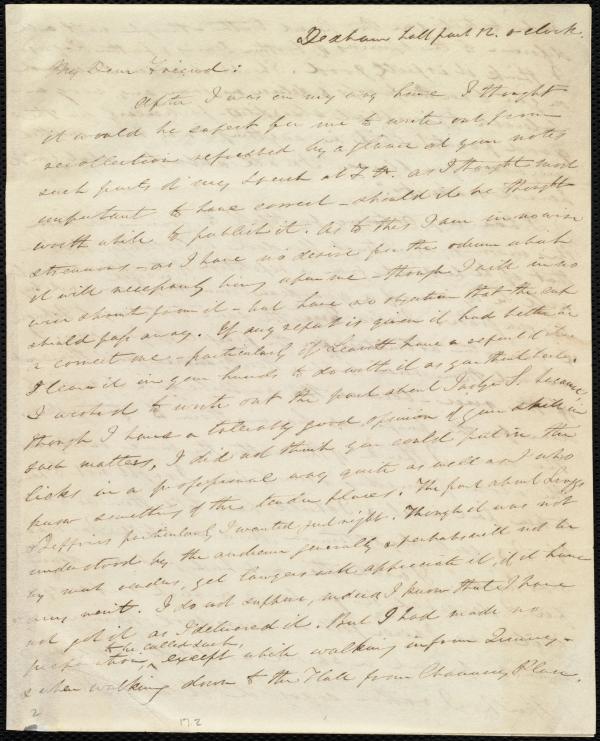 Dedham half past 12. o clock.
My Dear Friend:
After I was on my way home I thought
it would be safest for me to write out, from
recollection refreshed by a glance at your notes
such parts of my speech at F. H. as I thought most
important to have correct – should it be thought
worth while to publish it. As to this I am in no wise
strenuous – as I have no desire for the odium which
it will necessarily bring upon me – though I will in no
wise shrink from it – but have no objection that the cup
should pass away. If any report is given it had better be
a correct one – particularly if Leavitt have a report I
I leave it in your hands to do with it as you think best.
I wished to write out the part about Judge S. because
though I have a tolerably good opinion of your skill in
such matters, I did not think you could put in the
licks in a professional way quite as well as I who
know something of the tender places. The part about
Jeffries particularly I wanted just right. Though it was not
understood by the audience generally & perhaps will not be
by most readers, yet lawyers will appreciate it, if it have
any merit. I do not suppose, indeed I know that I have
not got it as I delivered it. But I had made no
to be called such,
except while walking in from Quincy &
when walking down to the Hall from Chauncy Place.
2
17.2